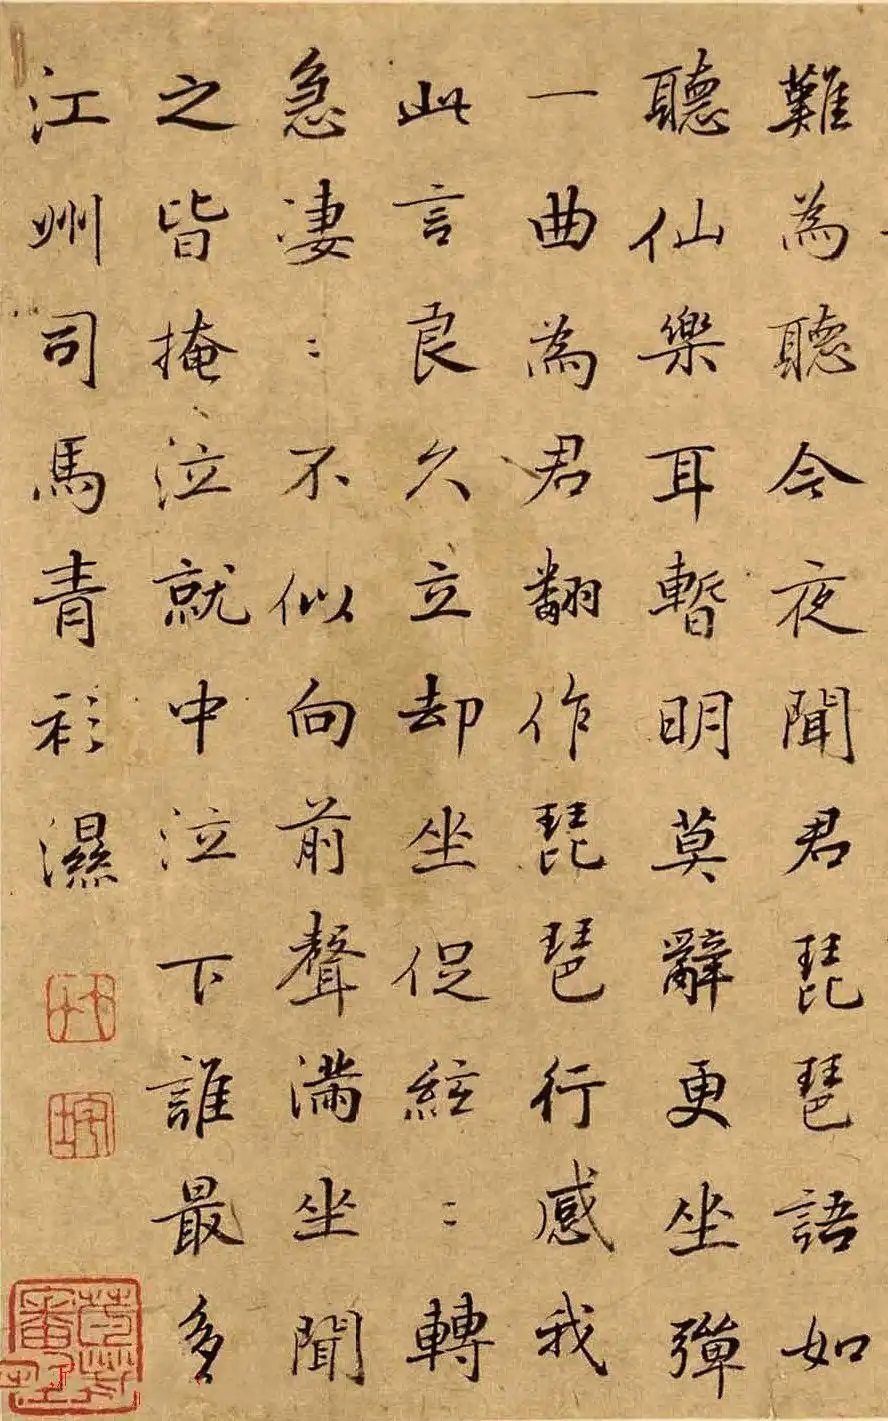 難為聽今夜聞君琵琶語如
聽仙樂耳暫明莫辭更坐彈
一曲為君翻作琵琶行感我
此言良久立却坐促絃〻轉
急凄〻不似向前聲滿坐聞
之皆掩泣就中泣下誰最多
江州司馬青衫濕